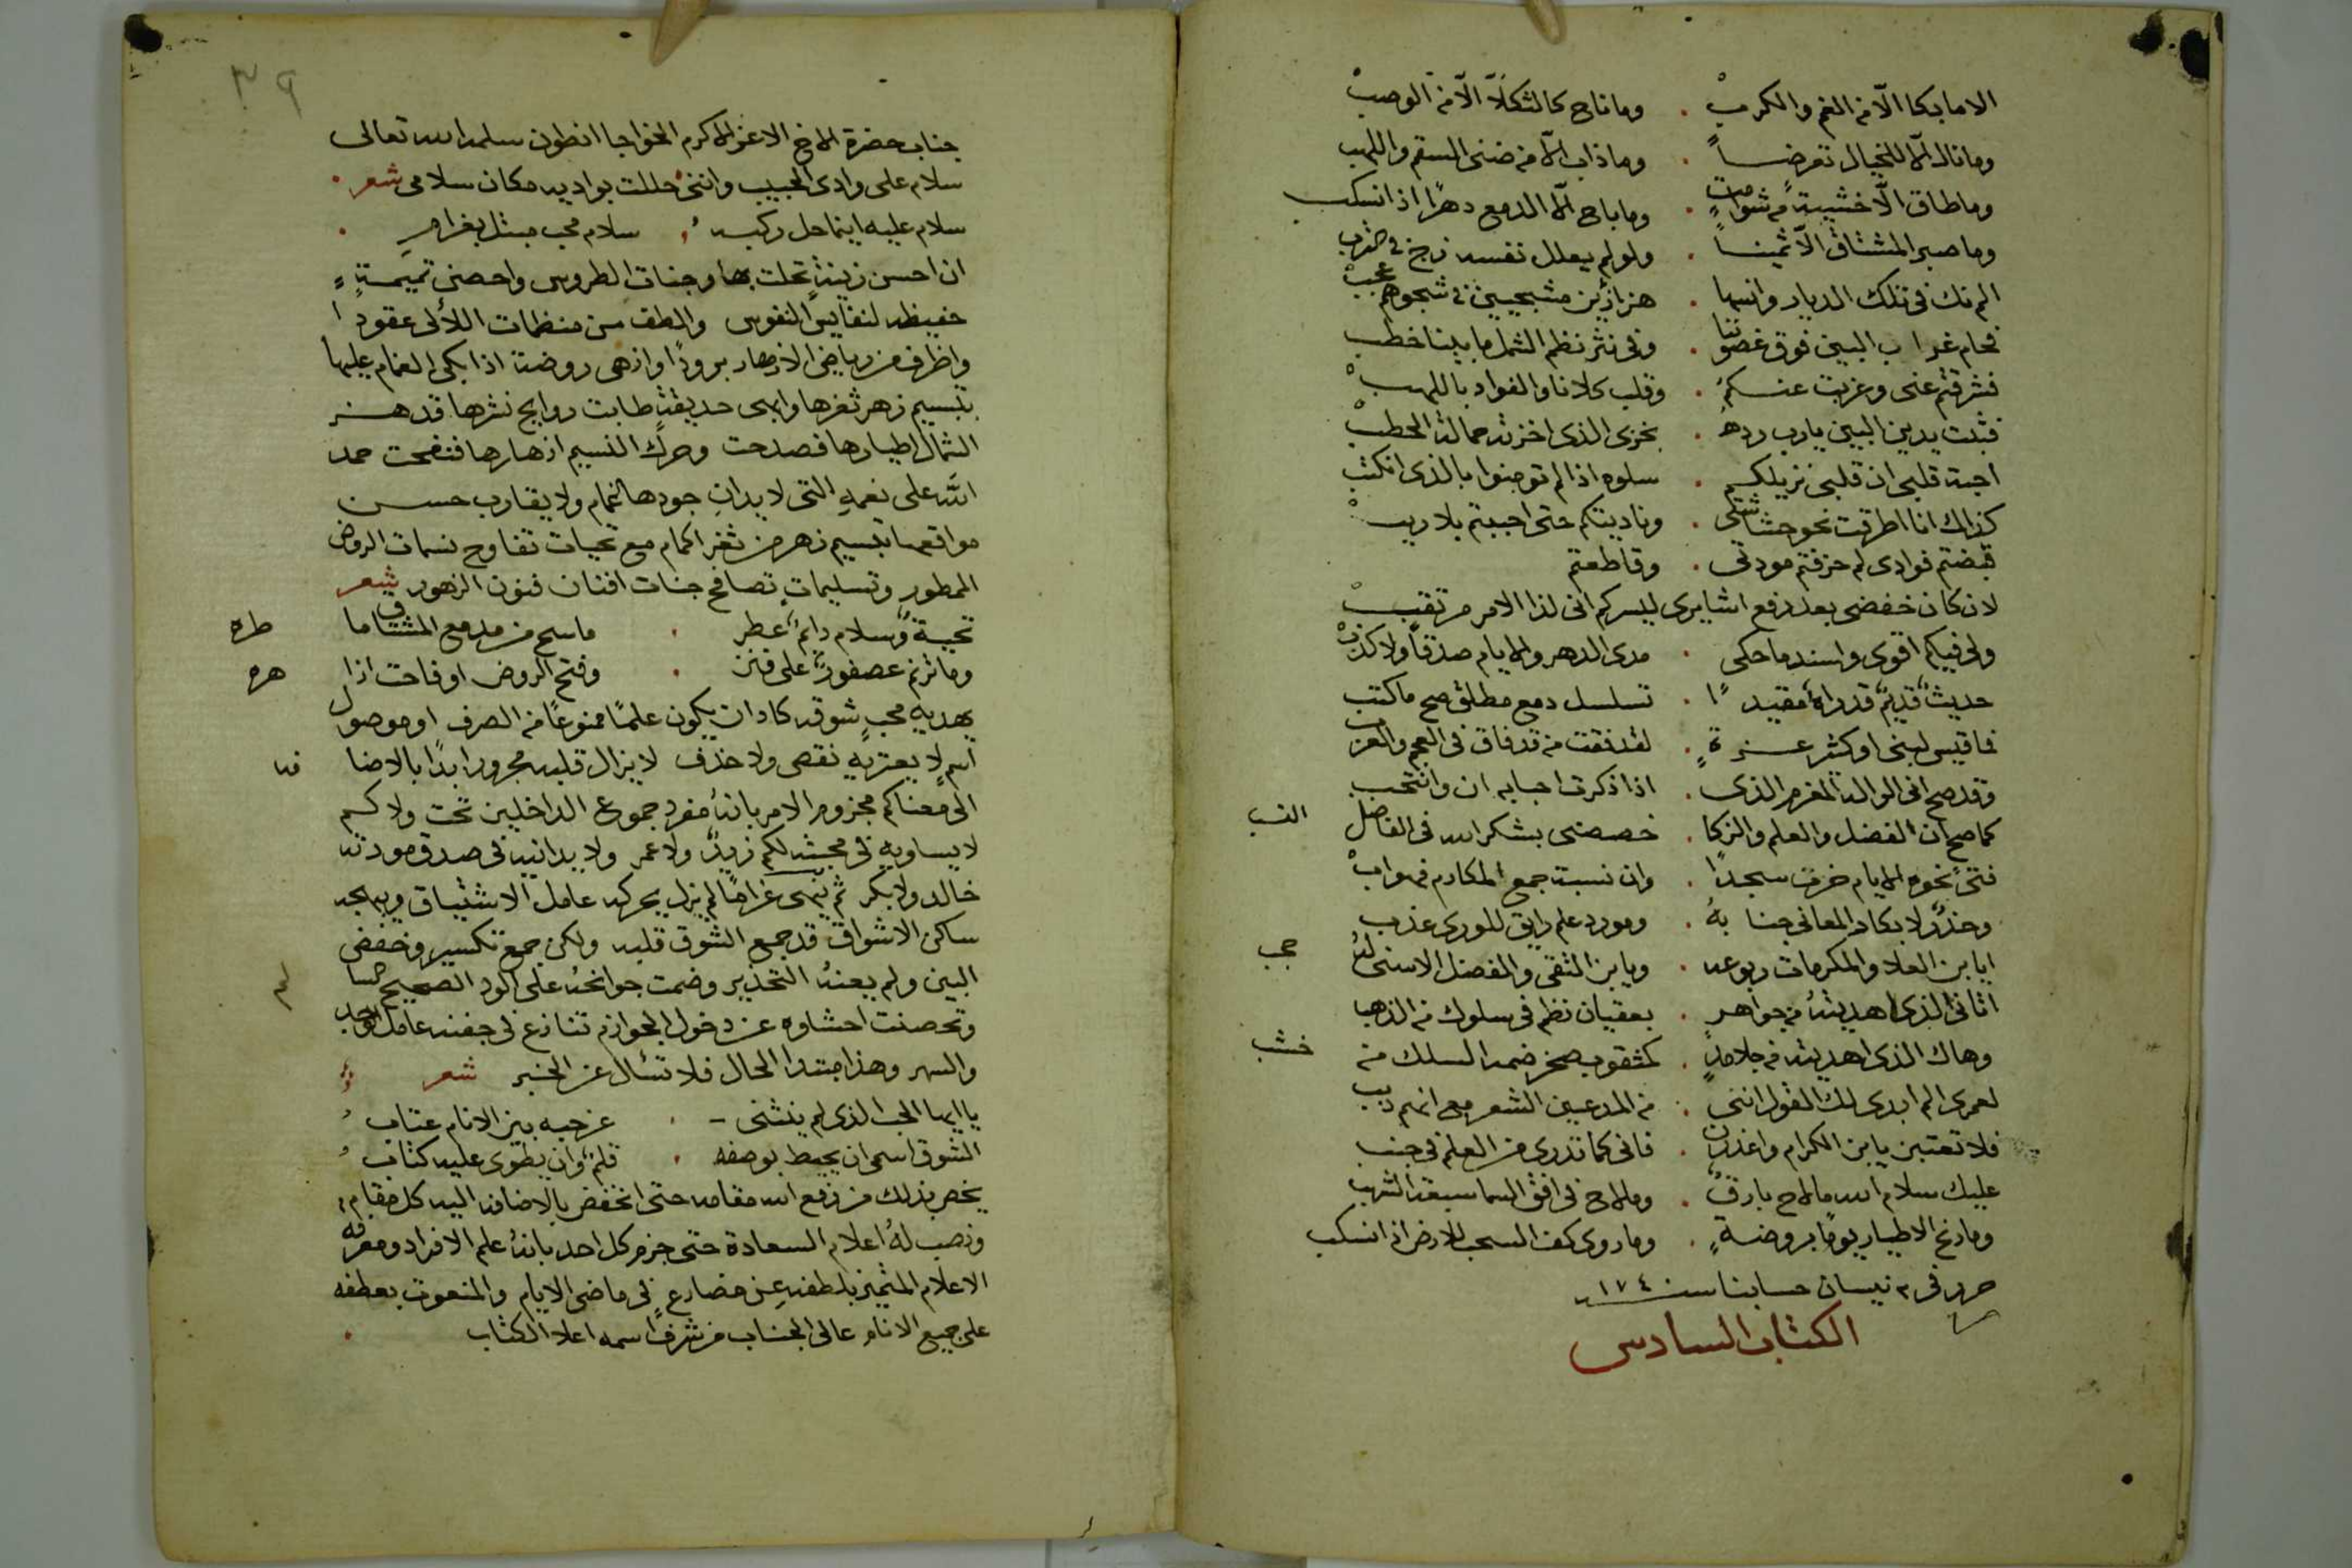 الاما بكا الّا من الغم والكربْ . وما ناح كالثكلّا الّا من الوصبْ
وما نال الّا للخيال تعرضاً . وما ذاب الّا من ضنى السقم واللهب
وما طاق الّا خشية من شوامتٍ . وما باح الّا الدمع دهرًا اذا انسكب
وما صبر المشتاق الّا ثمينـاً . ولو لم يعلل نفسه زج في ضرب
الم نك في تلك الديار وانسها . هزازين مشجيين في شجوهم عجبْ
فحام غراب البين فوق غصوننا . وفي نثر نظم الشمل ما بيننا خطب
فشرقتم عني وغربت عنـكمُ . وقلب كلانا والفواد باللهبْ
فتبت يدين البين يارب ردهُ . بخزى الذي اخزته حمالة الحطبْ
احبة قلبي ان قلبي نزيلكم . سلوه اذا لم تومنوا بالذي انكتب
كذاك انا اطرقت نحو حشاشتي . وناديتكم حتى اجبتم بلا ريبْ
قبضتم فوادي لم حزفتم مودتي . وقاطعتم
لان كان خفضي بعد رفع اشايري ليسركم اني لذا الامر مرتقبْ
ولي فيكم اقوى واسند ما حكى . مدى الدهر والايام صدقاً ولا كذبْ
حديثٌ قديمٌ قد رواهُ مقيدًا . تسلسل دمع مطلق صح ما كتب
فما قيس لبنى او كثير عـزةٍ . لقد فقت من قد فاق في العجم والعرب
وقد صح اني الواله المغرم الذي . اذا ذكرت احبابه ان وانتحب
كما صح ان الفضل والعلم والزكا . خصصني بشكر الله في الفاضل النسب
فتى نحوه الايام خرت سجدًا . وان نسبت جمع المكارم فهو ابْ
وخذٌ ولا بكار المعاني جنابهُ . ومورد علم رايق للورى عذب
ايابن العلا والمكرمات ربوعه . ويابن التقى والمفضل الاسنى لهُ حجب
اتاني الذي اهديتهُ من جواهر . بعقيان نظم في سلوك من الذهب
وهاك الذي اهديته من جلامدٍ . كمثقوب صخر ضمه السلك من خشب
لعمرى الم ابدى لك القول انني . من المدعين الشعر مع انهم ريب
فلا تعتبن يابن الكرام واعذرن . فاني كما تدرى من العلم في جنب
عليك سلام الله ما لاح بارقٌ . وما لاح في افق السما سبعة الشهب
وما رنخ الاطيار يومًا بروضةٍ . وما روى كف السحب للارض اذا انسكب
حرر في ٣ نيسان حسابنا سنة ١٧٤
الكتاب السادس
٣٩
جناب حضرة الاخ الاعز الاكرم الخواجا انطون سلمه الله تعالى
سلام على وادى الحبيب وانني حللت بواديه مكان سلامي شعر .
سلام عليه اينما حل ركبه سلام محب مبتل بغرامِ .
ان احسن زينة تحلت بها وجنات الطروس واحصن تميمةٍ
حفيظه لنفايس النفوس والطف من منظمات اللألى عقودا
واظرف من رياض الازهار برودًا وازهى روضة اذا بكى الغمام عليها
بتسيم زهر ثغرها وابهى حديقة طابت روايح نثرها قد هـز
الشمال اطيارها فصدحت وحرك النسيم ازهارها فنفحت حمد
الله على نعمهِ التي لا يدان جودها الغمام ولا يقارب حسـن
مواقعها تبسيم زهر من ثغر اكمام مع تحيات تفاوح نسمات الروض
الممطور وتسليمات تصافح جنات افنان فنون الزهور شعر
تحيـة وسلام دايم عطر . ما سح من مدمع المشتاق ما طره
وما ترنم عصفور على فنن . وفتح الروض او فاحت ازا هره
يهديهِ محبٍ شوقه كاد ان يكون علمًا ممنوعًا من الصرف او موصول
اسمٍ لا يعتريهِ نقص ولا حذف لا يزال قلبه مجرورا ابدًا بالاضا فه
الى مغناكم مجزوم الامر بانهُ مفرد جموع الداخلين تحت ولاكم
لا يساويهِ في محبته لكم زيدٌ ولا عمر ولا يدانيه في صدق مودته
خالد ولا بكر ثم ينهى غرامًا لم يزل يحركه عامل الاشتياق ويهيجه
ساكن الاشواق قد جمع الشوق قلبه ولكن جمع تكسير وخفضى
البين ولم يعنهُ التحذير وضمت جوانحهُ على الود الصحيح السا لم
وتحصنت احشاوه عن دخول الجوازم تنازع في جفنه عامل الوجد
والسهر وهذا مبتدا الحال فلا تسأل عن الخبر شعر
يا ايها الحب الذي لم ينثنى . عن حبه بين الانام عتاب
الشوق اسمى ان يحيط بوصفه . قلمٌ وان يطوى عليه كتاب
يخص بذلك من رفع الله مقامه حتى انخفض بالاضافه اليه كل مقام
ونصب لهُ اعلام السعادة حتى جزم كل احد بانهُ علم الافراد ومعرفه
الاعلام المتميز بلطفه عن مضارعٍ في ماضى الايام والمنعوت بعطفه
على جميع الانام عالى الجناب من شرفًا اسمه اعلا الكتاب .